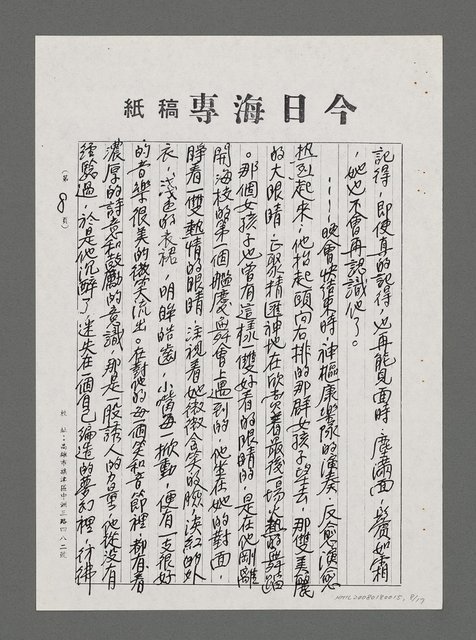 今日海專稿紙
記得，即使真的記得，也再能見面時，塵滿面，鬢如霜
，她也不會再認識他了。
……晚會快結束時，神樞康樂隊的演奏，反愈演愈
熱烈起來，他抬起頭向右排的那群女孩子望去，那雙美麗
的大眼睛，正聚精匯神地在欣賞著最後一場火熱的舞蹈
。那個女孩子也曾有這樣一雙好看的眼睛的，是在他剛離
開海校的第一個艦慶舞會上遇到的，他坐在她的對面，
睜着一雙熱情的眼睛，注視着她微微含笑的臉，淡紅的外
衣，淺色的末裙，明眸皓齒，小嘴每一掀動，便有一支很好
的音樂很美的微笑流出。在對他的每一個笑和音節裡，都有着
濃厚的詩意和鼓勵的意識，那是一股誘人的力量，他從沒有
經驗過，於是他沉醉了，迷失在一個自己編造的夢幻裡，彷彿
（第 8 頁）
校址：高雄市旗津區中洲三路四八二號
NMTL20080180015, 8/17